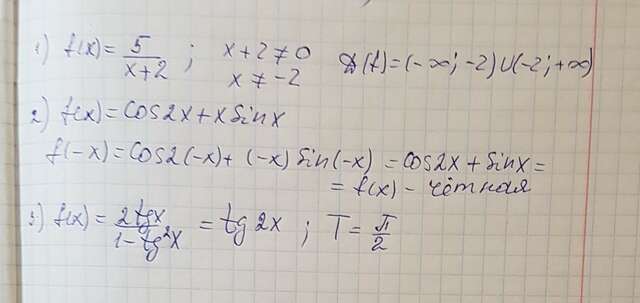 1) f(x) = 5/(x+2) ; x+2≠0 D(f) = (-∞; -2)∪(-2; +∞)
x ≠ -2
2) f(x) = cos2x + x sinx
f(-x) = cos2(-x) + (-x) sin(-x) = cos2x + sinx =
= f(x) - чётная
3) f(x) = 2tgx/(1-tg²x) = tg2x ; T = π/2